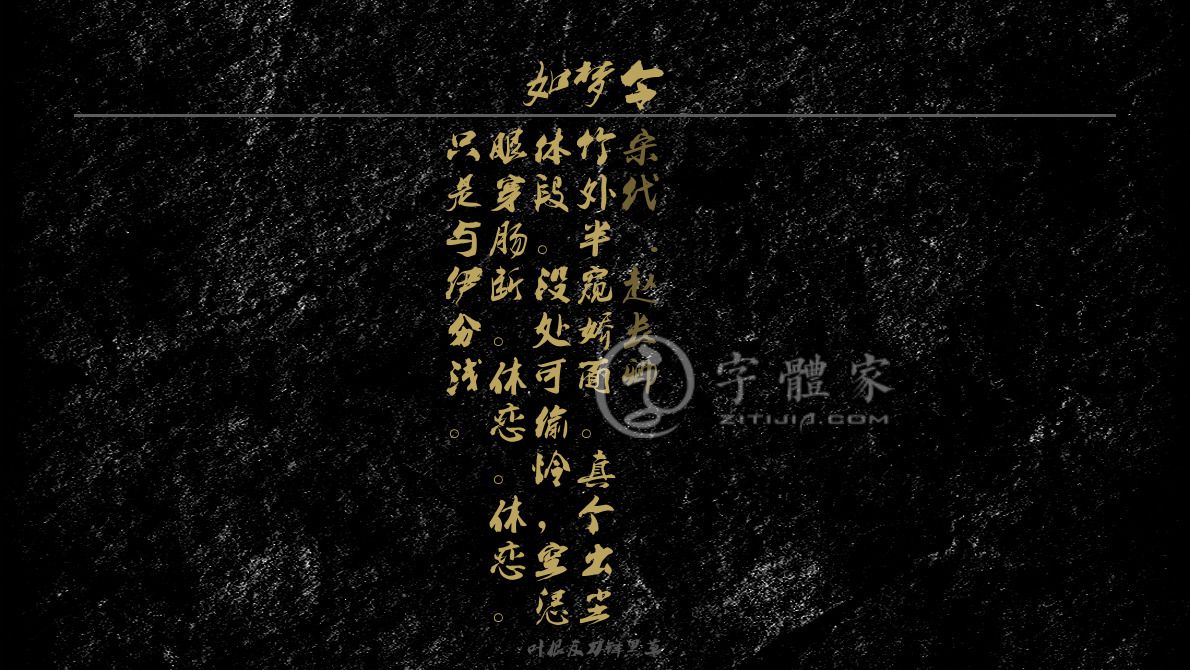 如梦令
宋代 · 赵长卿
竹外半窥娇面。真个出尘
体段。没处可偷怜，空恁
眼穿肠断。休恋。休恋。
只是与伊分浅。
字體家
ZITIJIA.COM
叶根友刀锋黑草